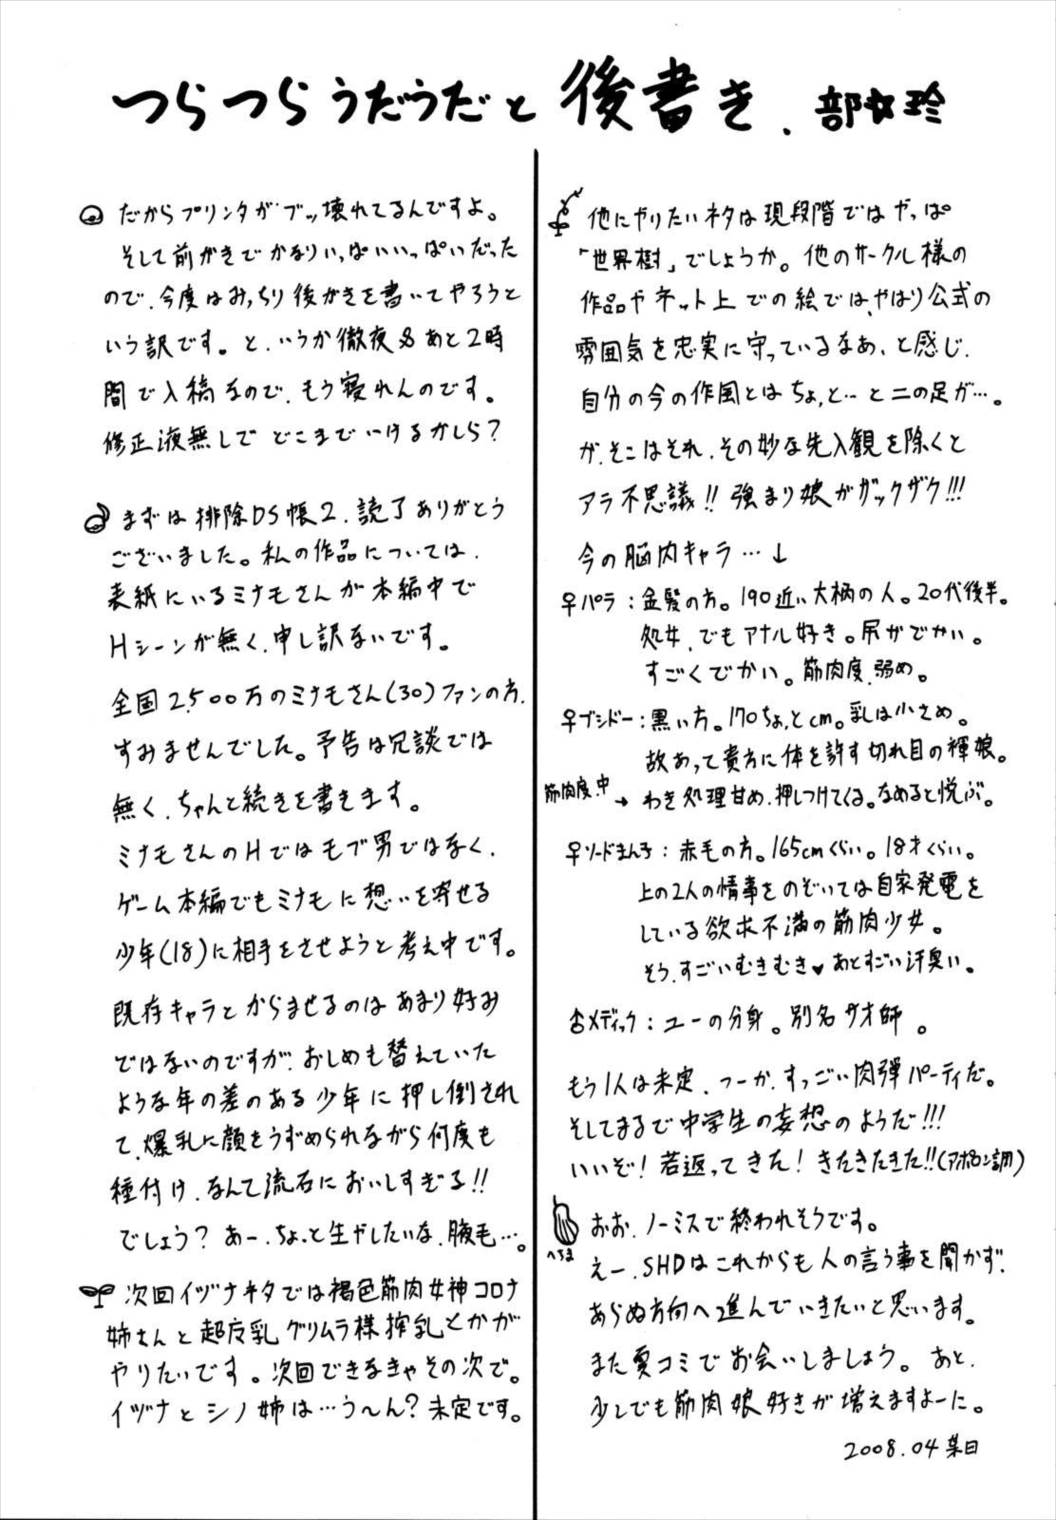 つらつらうだうだと後書き、部☆玲
だからプリンタがブッ壊れてるんですよ。
そして前がきでかなりいっぱいいっぱいだった
ので、今度はみっちり後がきを書いてやろうと
いう訳です。と、いうか徹夜&あと2時
間で入稿なので、もう寝れんのです。
修正液無しでどこまでいけるかしら?
まずは排除DS帳2、読了ありがとう
ございました。私の作品については、
表紙にいるミナモさんが本編中で
Hシーンが無く、申し訳ないです。
全国2,500万のミナモさん(30)ファンの方、
すみませんでした。予告は冗談では
無く、ちゃんと続きを書きます。
ミナモさんのHではモブ男ではなく、
ゲーム本編でもミナモに想いを寄せる
少年(18)に相手をさせようと考え中です。
既存キャラとからませるのはあまり好み
ではないのですが、おしめも替えていた
ような年の差のある少年に押し倒され
て、爆乳に顔をうずめられながら何度も
種付け、なんて流石においしすぎる!!
でしょう?あー、ちょっと生やしたいな、腋毛…。
次回イヅナネタでは褐色筋肉女神コロナ
姉さんと超反乳グリムラ様搾乳とかが
やりたいです。次回できなきゃその次で。
イヅナとシノ姉は…う〜ん?未定です。
他にやりたいネタは現段階ではやっぱ
「世界樹」でしょうか。他のサークル様の
作品やネット上での絵では、やはり公式の
雰囲気を忠実に守っているなあ、と感じ、
自分の今の作風とはちょっと…と二の足が…。
が、そこはそれ、その妙な先入観を除くと
アラ不思議!!強まり娘がガックザク!!!
今の脳内キャラ…↓
♀パラ:金髪の方。190近い大柄の人。20代後半。
処女、でもアナル好き。尻がでかい。
すごくでかい。筋肉度、弱め。
♀ブシドー:黒い方。170ちょっとcm。乳は小さめ。
故あって貴方に体を許す切れ目の褌娘。
筋肉度、中→わき処理甘め、押しつけてくる。なめると悦ぶ。
♀ソードまん子:赤毛の方。165cmくらい。18才くらい。
上の2人の情事をのぞいては自家発電を
している欲求不満の筋肉少女。
そう、すごいむきむき♥あとすごい汗臭い。
♂メディック:ユーの分身。別名サオ師。
もう1人は未定、つーか、すっごい肉弾パーティだ。
そしてまるで中学生の妄想のようだ!!!
いいぞ!若返ってきた!きたきたきた!!(アポロン調)
へちま
おお、ノーミスで終われそうです。
えー、SHDはこれからも人の言う事を聞かず、
あらぬ方向へ進んでいきたいと思います。
また夏コミでお会いしましょう。あと、
少しでも筋肉娘好きが増えますよーに。
2008.04某日